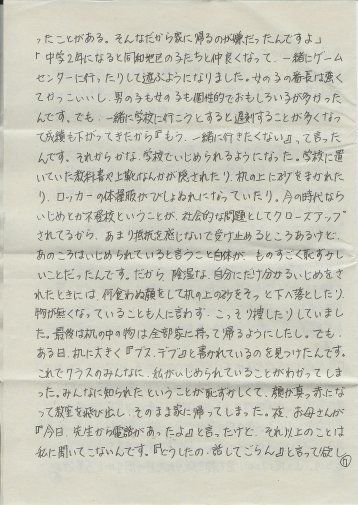 ったことがある。そんなだから家に帰るのが嫌だったんですよ」
「中学2年になると同和地区の子たちと仲良くなって、一緒にゲーム
センターに行ったりして遊ぶようになりました。女の子の番長は凄く
てかっこいいし、男の子も女の子も個性的でおもしろい子が多かった
んです。でも、一緒に学校に行こうとすると遅刻することが多くなっ
て成績も下がってきたから『もう、一緒に行きたくない』って言った
んです。それからかな、学校でいじめられるようになった。学校に置
いていた教科書や上靴なんかが隠されたり、机の上に砂をまかれた
り、ロッカーの体操服がびしょぬれになっていたり。今の時代なら
いじめとか不登校ということが、社会的な問題としてクローズアップ
されてるから、あまり抵抗を感じないで受け止めるところあるけど、
あのころはいじめられていると言うこと自体が、ものすごく恥ずかし
いことだったんです。だから、陰湿な、自分にだけ分かるいじめをさ
れたときには、何食わぬ顔をして机の上の砂をそっと下へ落としたり、
物が無くなっていることも人に言わず、こっそり捜したりしていまし
た。最後は机の中の物は全部家に持って帰るようにしたし。でも、
ある日、机に大きく『ブス、デブ』と書かれているのを見つけたんです。
これでクラスのみんなに、私がいじめられていることがわかってしま
った。みんなに知られたということが恥ずかしくて、顔が真っ赤にな
って教室を飛び出し、そのまま家に帰ってしまった。夜、お母さんが
『今日、先生から電話があったよ』と言ったけど、それ以上のことは
私に聞いてこないんです。『どうしたの、話してごらん』と言って欲し